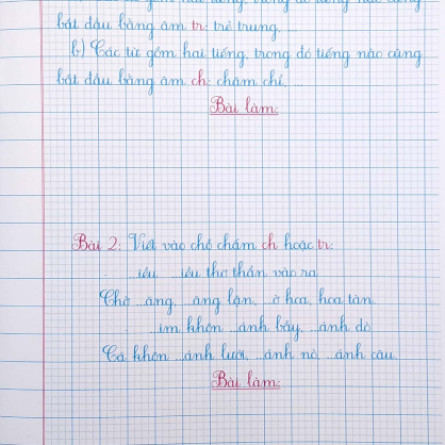 bắt đầu bằng âm tr: trẻ trung,...
b) Các từ gồm hai tiếng, trong đó tiếng nào cũng
bắt đầu bằng âm ch: chăm chỉ,...
Bài làm:
Bài 2: Viết vào chỗ chấm ch hoặc tr:
...iều ...iều thơ thẩn vào ra
Chờ ...ăng, ...ăng lặn, ...ờ hoa, hoa tàn
...im khôn ...ánh bẫy, ...ánh dò
Cá khôn ...ánh lưới, ...ánh nò, ...ánh câu.
Bài làm: